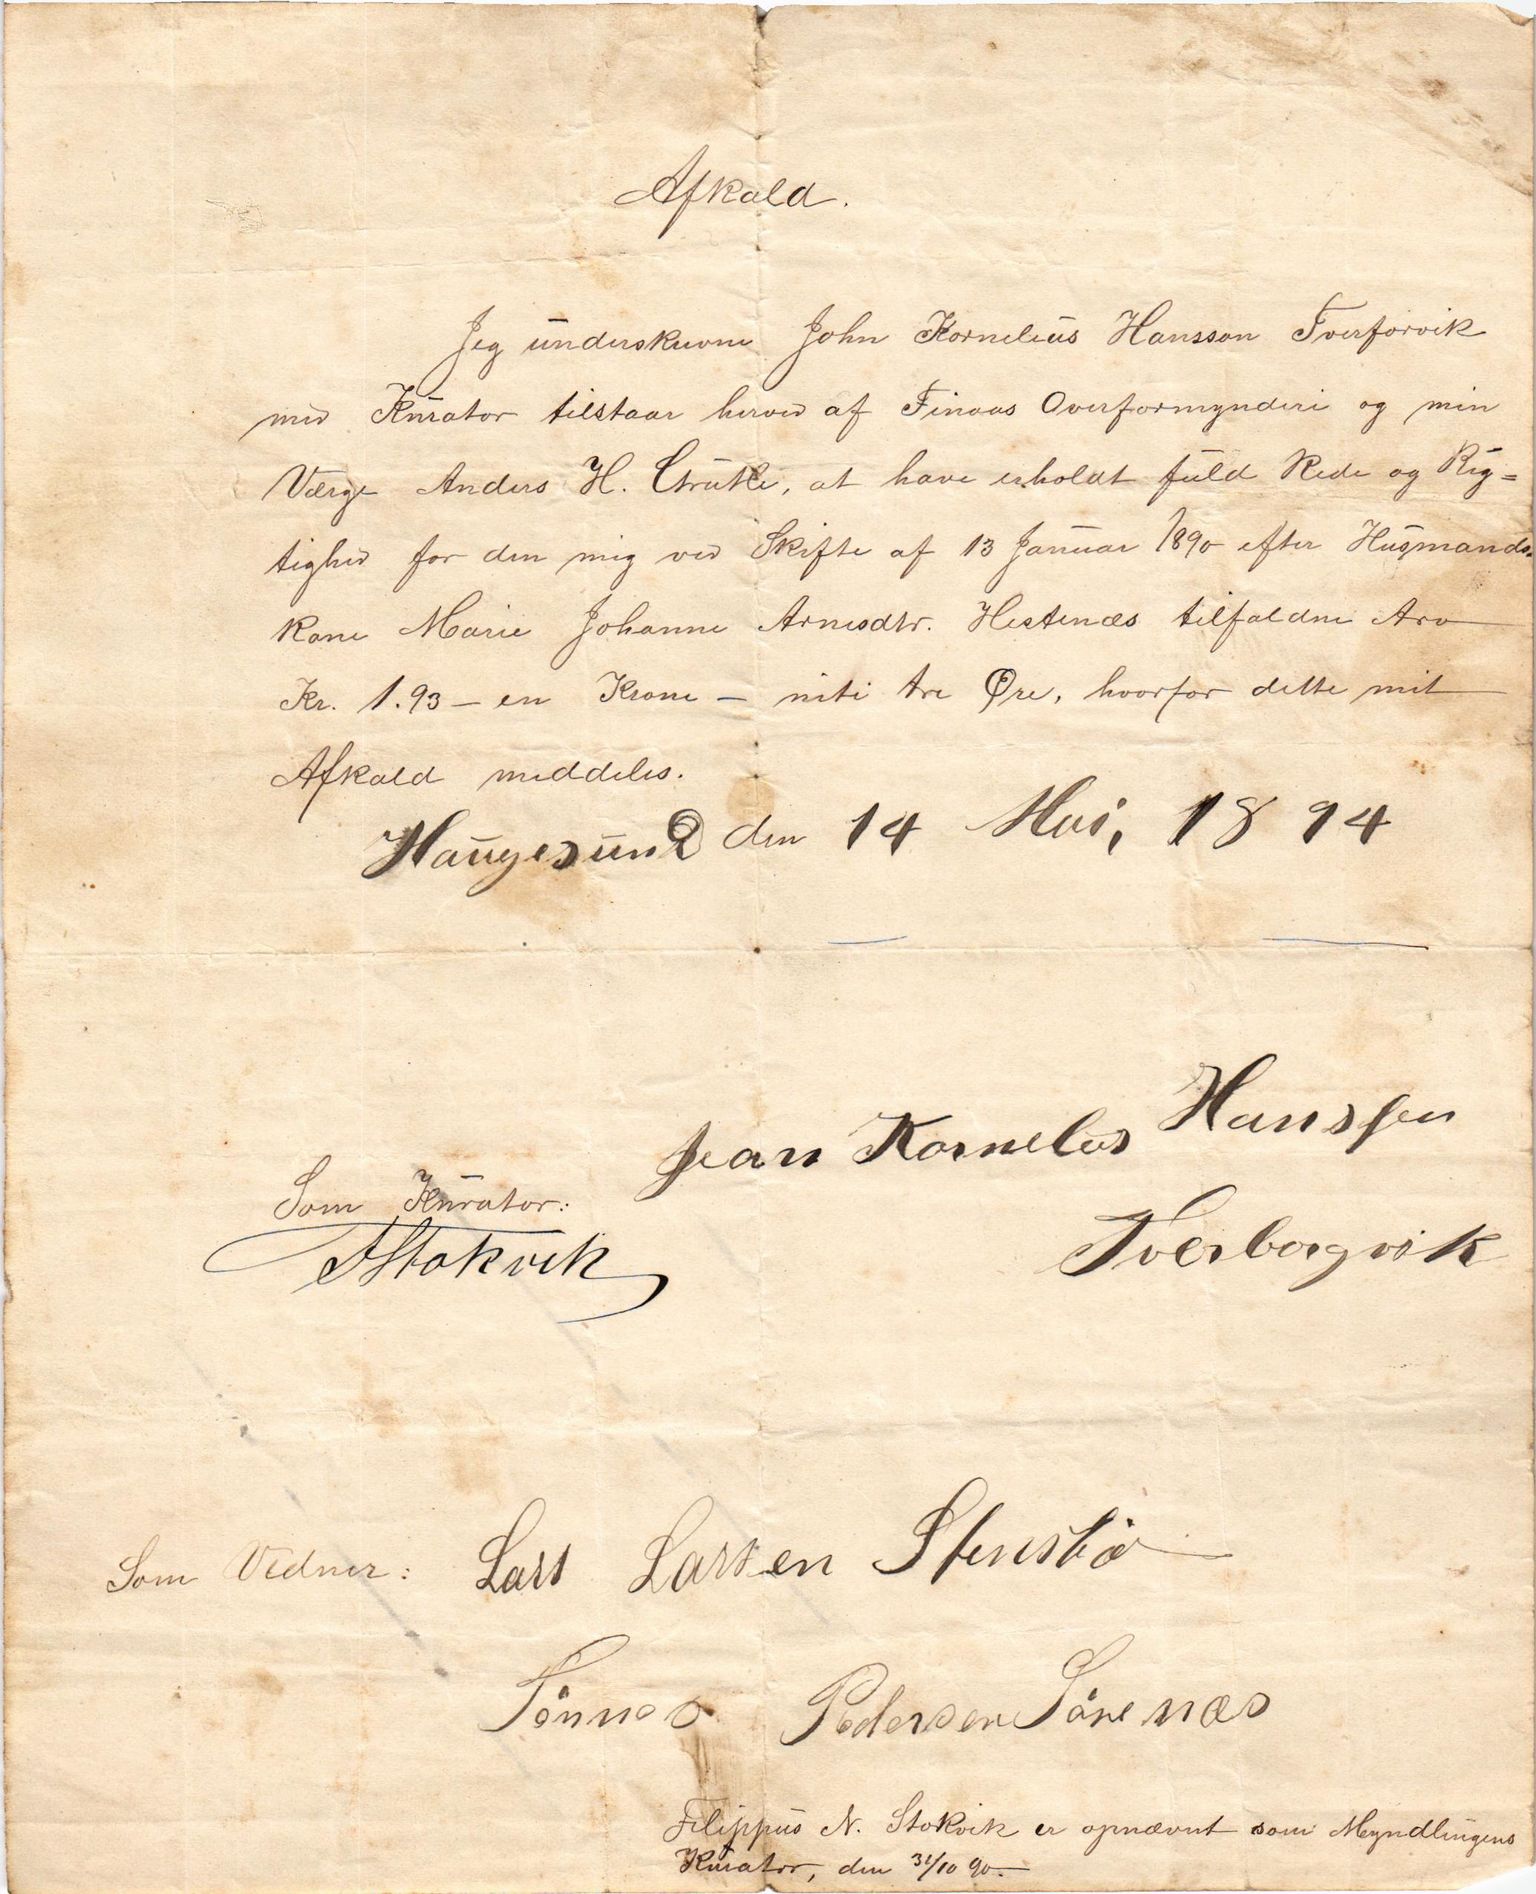 Afkald.
Jeg underskrevne John Kornelius Hansson Tverforvik
med Kurator tilstaar herved af Finaas Overformynderi og min
Værge Anders H. at have erholdt fuld Rede og Rig=
tighed for den mig ved Skifte af 13 Januar 1890 efter Husmands-
kone Marie Johanne Arnesdtr. Hestenæs tilfaldne Arv
Kr. 1.93 - en Krone - niti tre Øre, hvorfor dette mit
Afkald meddeles.
Haugesund den 14 Mai, 1894
Jean Kornelus Hanssen
Som Kurator:
Tverborgvik
FStokvik
Som Vidner: Lars Larsen Stensbø
Tönnes Pedersen Törenæs
Filippus N. Stokvik er opnævnt som Myndlingens
Kurator, den 31/10 90.